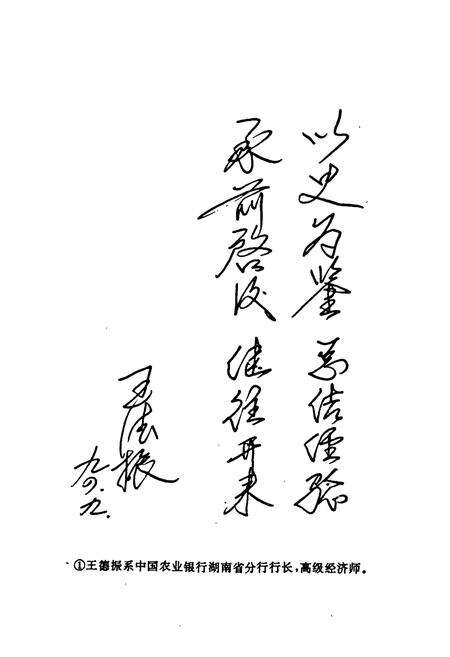 以史为鉴 总结经验
承前启后 继往开来
王德振
九四.九.
①王德振系中国农业银行湖南省分行行长，高级经济师。